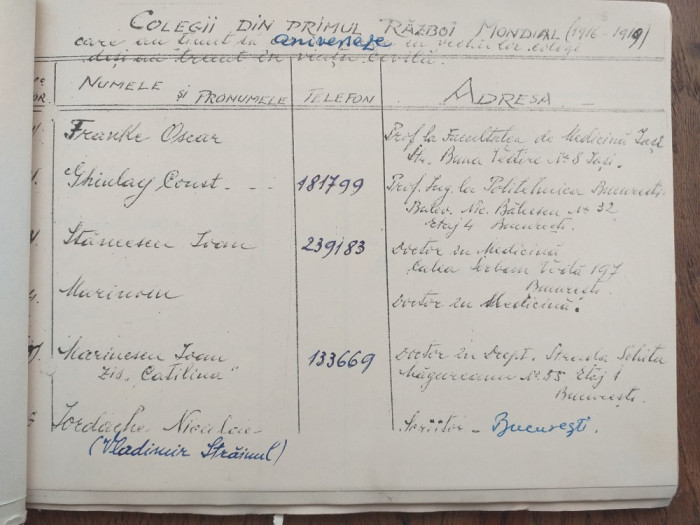 COLEGII DIN PRIMUL RĂZBOI MONDIAL (1916-1919)
care au ținut la aniversare
deși au trecut în viața civilă.
NUMELE ȘI PRONUMELE TELEFON ADRESA
Franke Oscar Prof. la Facultatea de Medicină Iași
Str. Buna Vestire No 8 Iași.
Const. 181799 Prof. Ing. la Politehnica București.
Bulev. Nic. Bălcescu No 32
Etaj 4 București.
Stănescu Ioan 239183 Doctor în Medicină
Calea Șerban Vodă 197
București.
Marinoiu Doctor în Medicină.
Marinescu Ioan 133669 Doctor în Drept. Strada Schitu
zis "Catilina" Măgureanu No. 55 Etaj 1
București.
Iordache Nicolae Scriitor - București.
(Vladimir Străinul)